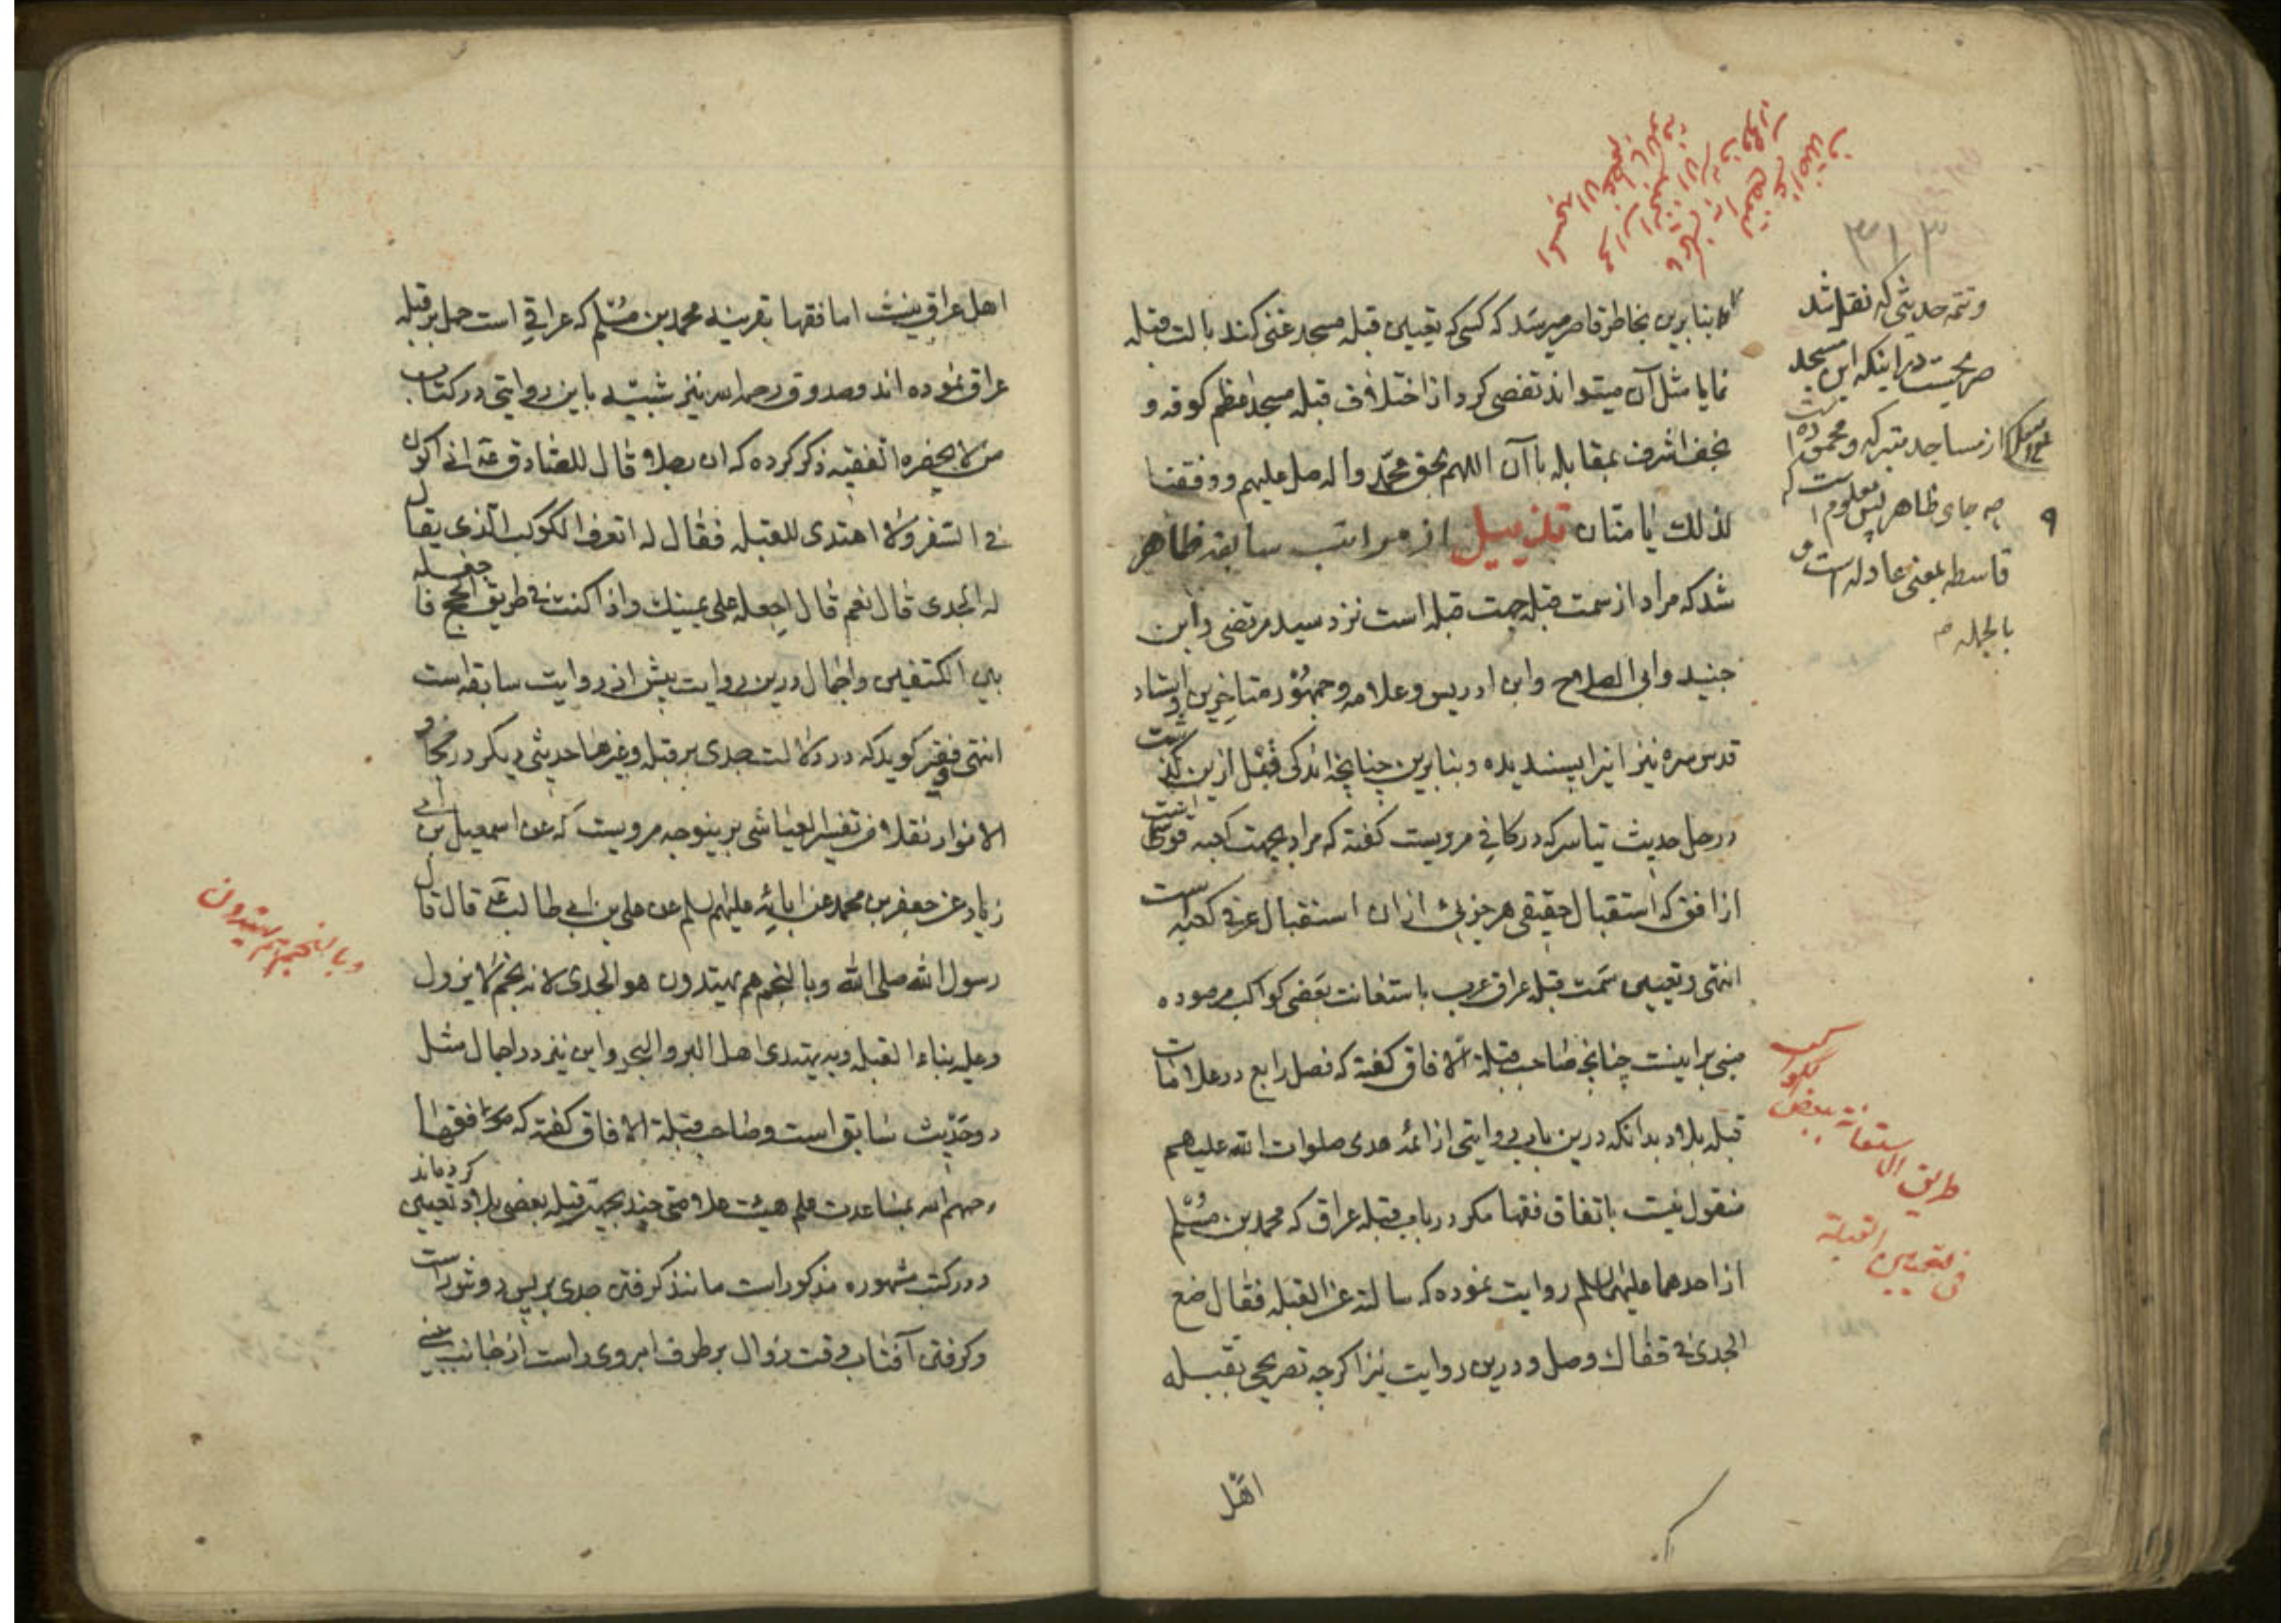 بنابرین بخاطر قاصر میرسد که کسی که تعیین قبله مسجد غنی کند بالت قبله
نما یا مثل آن میتواند تفصی کرد از اختلاف قبله مسجد اعظم کوفه و
نجف اشرف بمقابله با آن اللهم بحق محمد واله صل علیهم ووفقنا
لذلك یا منان تذییل از مراتب سابقه ظاهر
شد که مراد از سمت قبله جهت قبله است نزد سید مرتضی وابن
جنید وابی الصلاح وابن ادریس وعلامه وجمهور متاخرین واستاد
قدس سره نیز اینرا پسندیده وبنابرین چنانچه اندکی قبل ازین گذشت
در حل حدیث تیاسر که در کافی مرویست گفته که مراد بجهت کعبه قوسی است
از افق که استقبال حقیقی هر جزوی از ان استقبال عرفی کعبه است
انتهی وتعیین سمت قبله عراق عرب باستعانت بعضی کواکب مرصوده
مبنی براینست چنانچه صاحب قبلة الافاق گفته که فصل رابع در علامات
قبله بلاد بدانکه درین باب روایتی از ائمه هدی صلوات الله علیهم
منقول نیست باتفاق فقها مکر در باب قبله عراق که محمد بن مسلم
از احدهما علیهما السلم روایت نموده که سالته عن القبله فقال ضع
الجدی فی قفاك وصل ودرین روایت نیز اکرچه تصریح بقبله
اهل
وتتمه حدیثی که نقل شد
صریحست در اینکه این مسجد
از مساجد متبرکه ومحموده است
چه جای ظاهر پس معلوم است که
قاسطه بمعنی عادله است و
بالجمله
طریق الاستعانة ببعض الکواکب
فی تعیین القبلة
۳۱۳
اهل عراق نیست اما فقها بقرینه محمد بن مسلم که عراقی است حمل بر قبله
عراق نموده اند وصدوق رحمه الله نیز شبیه باین روایتی در کتاب
من لا یحضره الفقیه ذکر کرده که ان رجلا قال للصادق ع انی اکون
فی السفر ولا اهتدی للقبله فقال له اتعرف الکوکب الذی یقال
له الجدی قال نعم قال اجعله علی یمینك واذا کنت فی طریق الحج فاجعله
بین الکتفین واجمال درین روایت بیش از روایت سابقه است
انتهی وفقیر کوید که در دلالت جدی بر قبله وغیرها حدیثی دیکر در بحار
الانوار نقلا من تفسیر العیاشی برینوجه مرویست که عن اسمعیل بن ابی
زیاد عن جعفر بن محمد عن ابائه علیهم السلم عن علی بن ابی طالب ع قال قال
رسول الله صلی الله وبالنجم هم یهتدون هو الجدی لانه نجم لا یزول
وعلیه بناء القبله وبه یهتدی اهل البر والبحر واین نیز در اجمال مثل
دو حدیث سابق است وصاحب قبلة الافاق گفته که فقها
رحمهم الله بمساعدت علم هیئت علامتی چند بجهة قبله بعضی بلاد تعیین کرده اند
ودر کتب مشهوره مذکور است مانند کرفتن جدی بر پس دوش راست
وکرفتن آفتاب وقت زوال بر طرف ابروی راست از جانب بینی
وبالنجم هم یهتدون